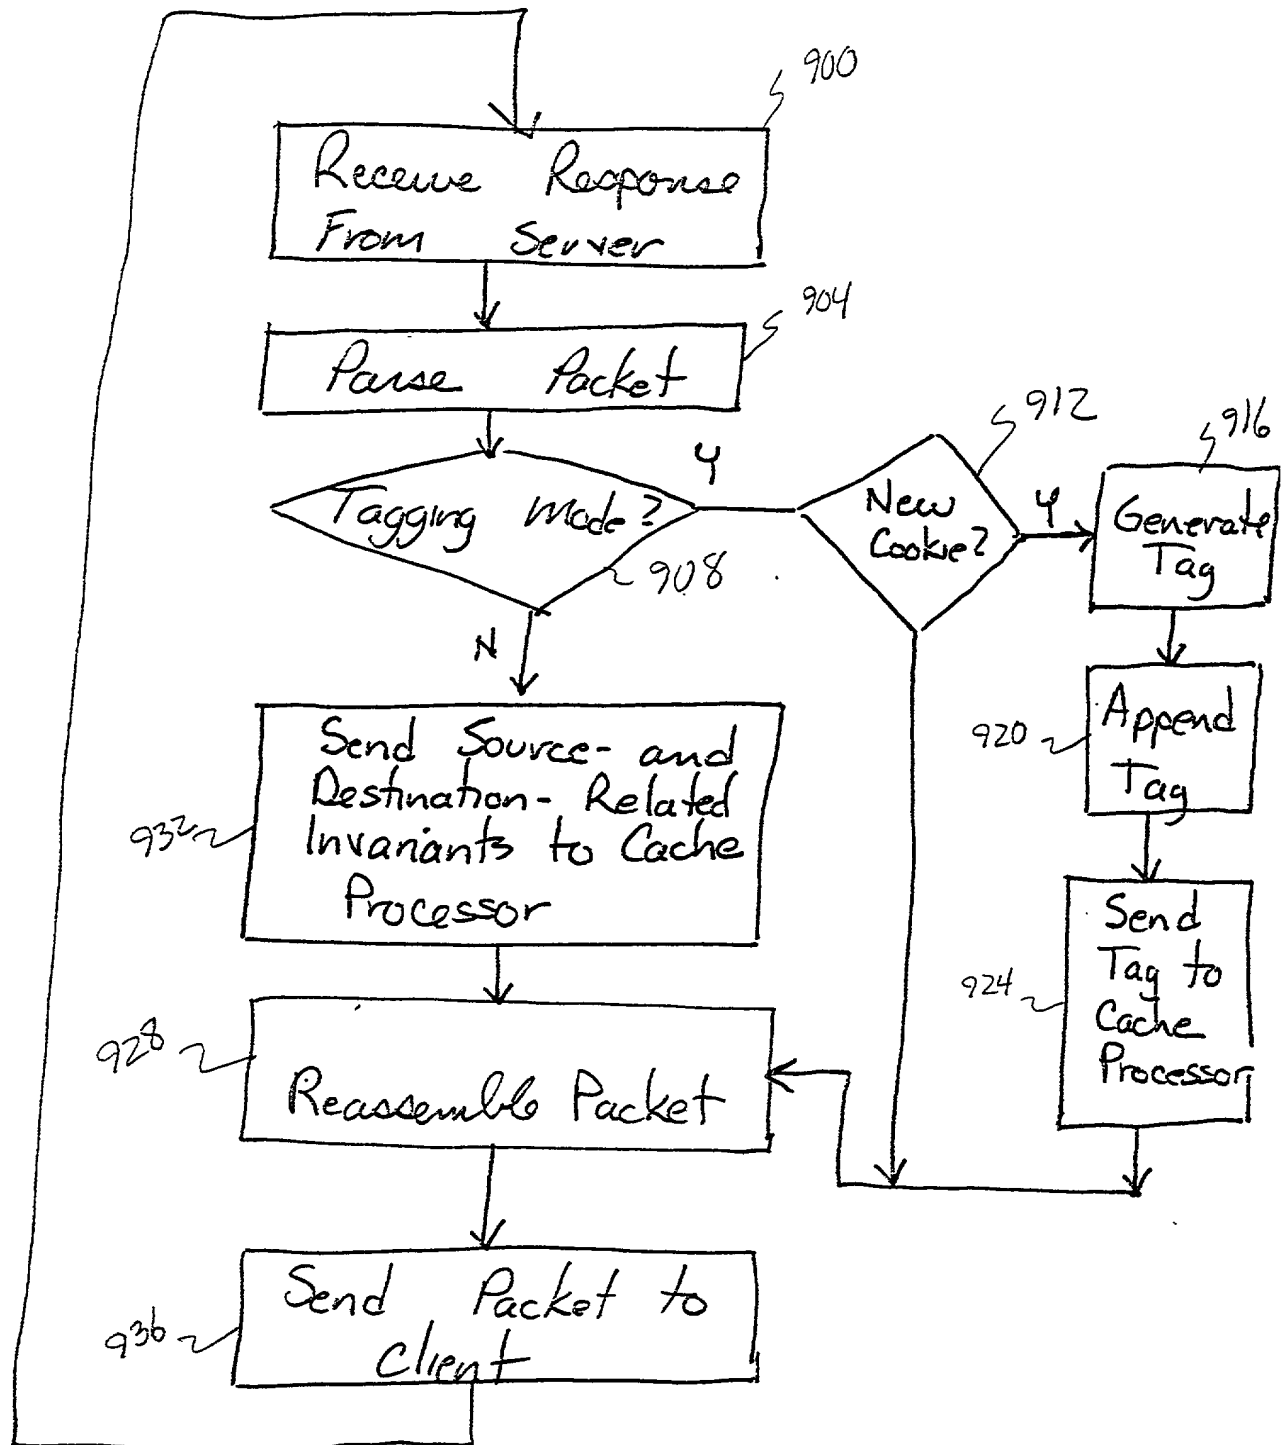 900
Receive Response
From Server
904
Parse Packet
912
916
Y
Tagging Mode?
908
New
Cookie?
Y
Generate
Tag
N
920
Append
Tag
932
Send Source- and
Destination- Related
Invariants to Cache
Processor
924
Send
Tag to
Cache
Processor
928
Reassemble Packet
936
Send Packet to
Client